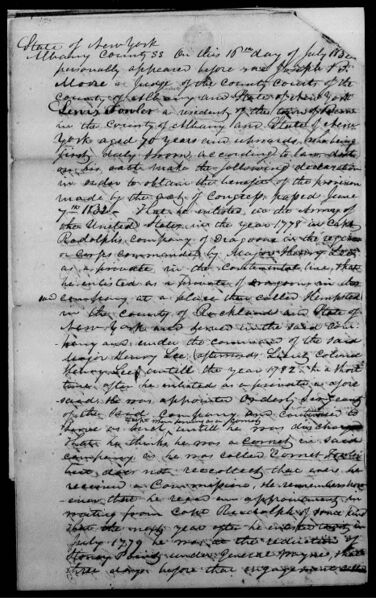 State of New York
Albany County SS On this 16th day of July 1832
personally appeared before me Joseph
Moore a Judge of the County Courts of the
County of Albany and State of New York
Lewis Fowler a resident of the town of
in the County of Albany and State of New
York aged 70 years and upwards, who being
first duly sworn according to law doth
on his oath make the following declaration
in order to obtain the benefit of the provision
made by the act of Congress passed June
7th 1832. That he enlisted in the Army of
the United States in the year 1778 in Capt
Rudolphs Company of Dragoons in the
or corps commanded by Major Henry Lee
as a private in the Continental line, that
he enlisted as a private of dragoons in the
said company at a place then called Hempsted
in the County of Rockland and State of
New York and served in the said com-
pany and under the command of the said
Major Henry Lee (afterwards Lieut Colonel
Henry Lee) untill the year 1782. In a short
time after he enlisted as a private as afore
said he was appointed Orderly Sergeant
of the said Company and continued to
serve as such untill he was discharged
That he thinks he was a Cornet in said
company as he was called Cornet
but does not recollect that he
received a Commission, he remembers
ever that he recd an appointment in
writing from Capt Rudolph of some kind
that the next year after he enlisted
July 1779 he was at the reduction of
Stoney Point under General Wayne, that
three days before that engagement